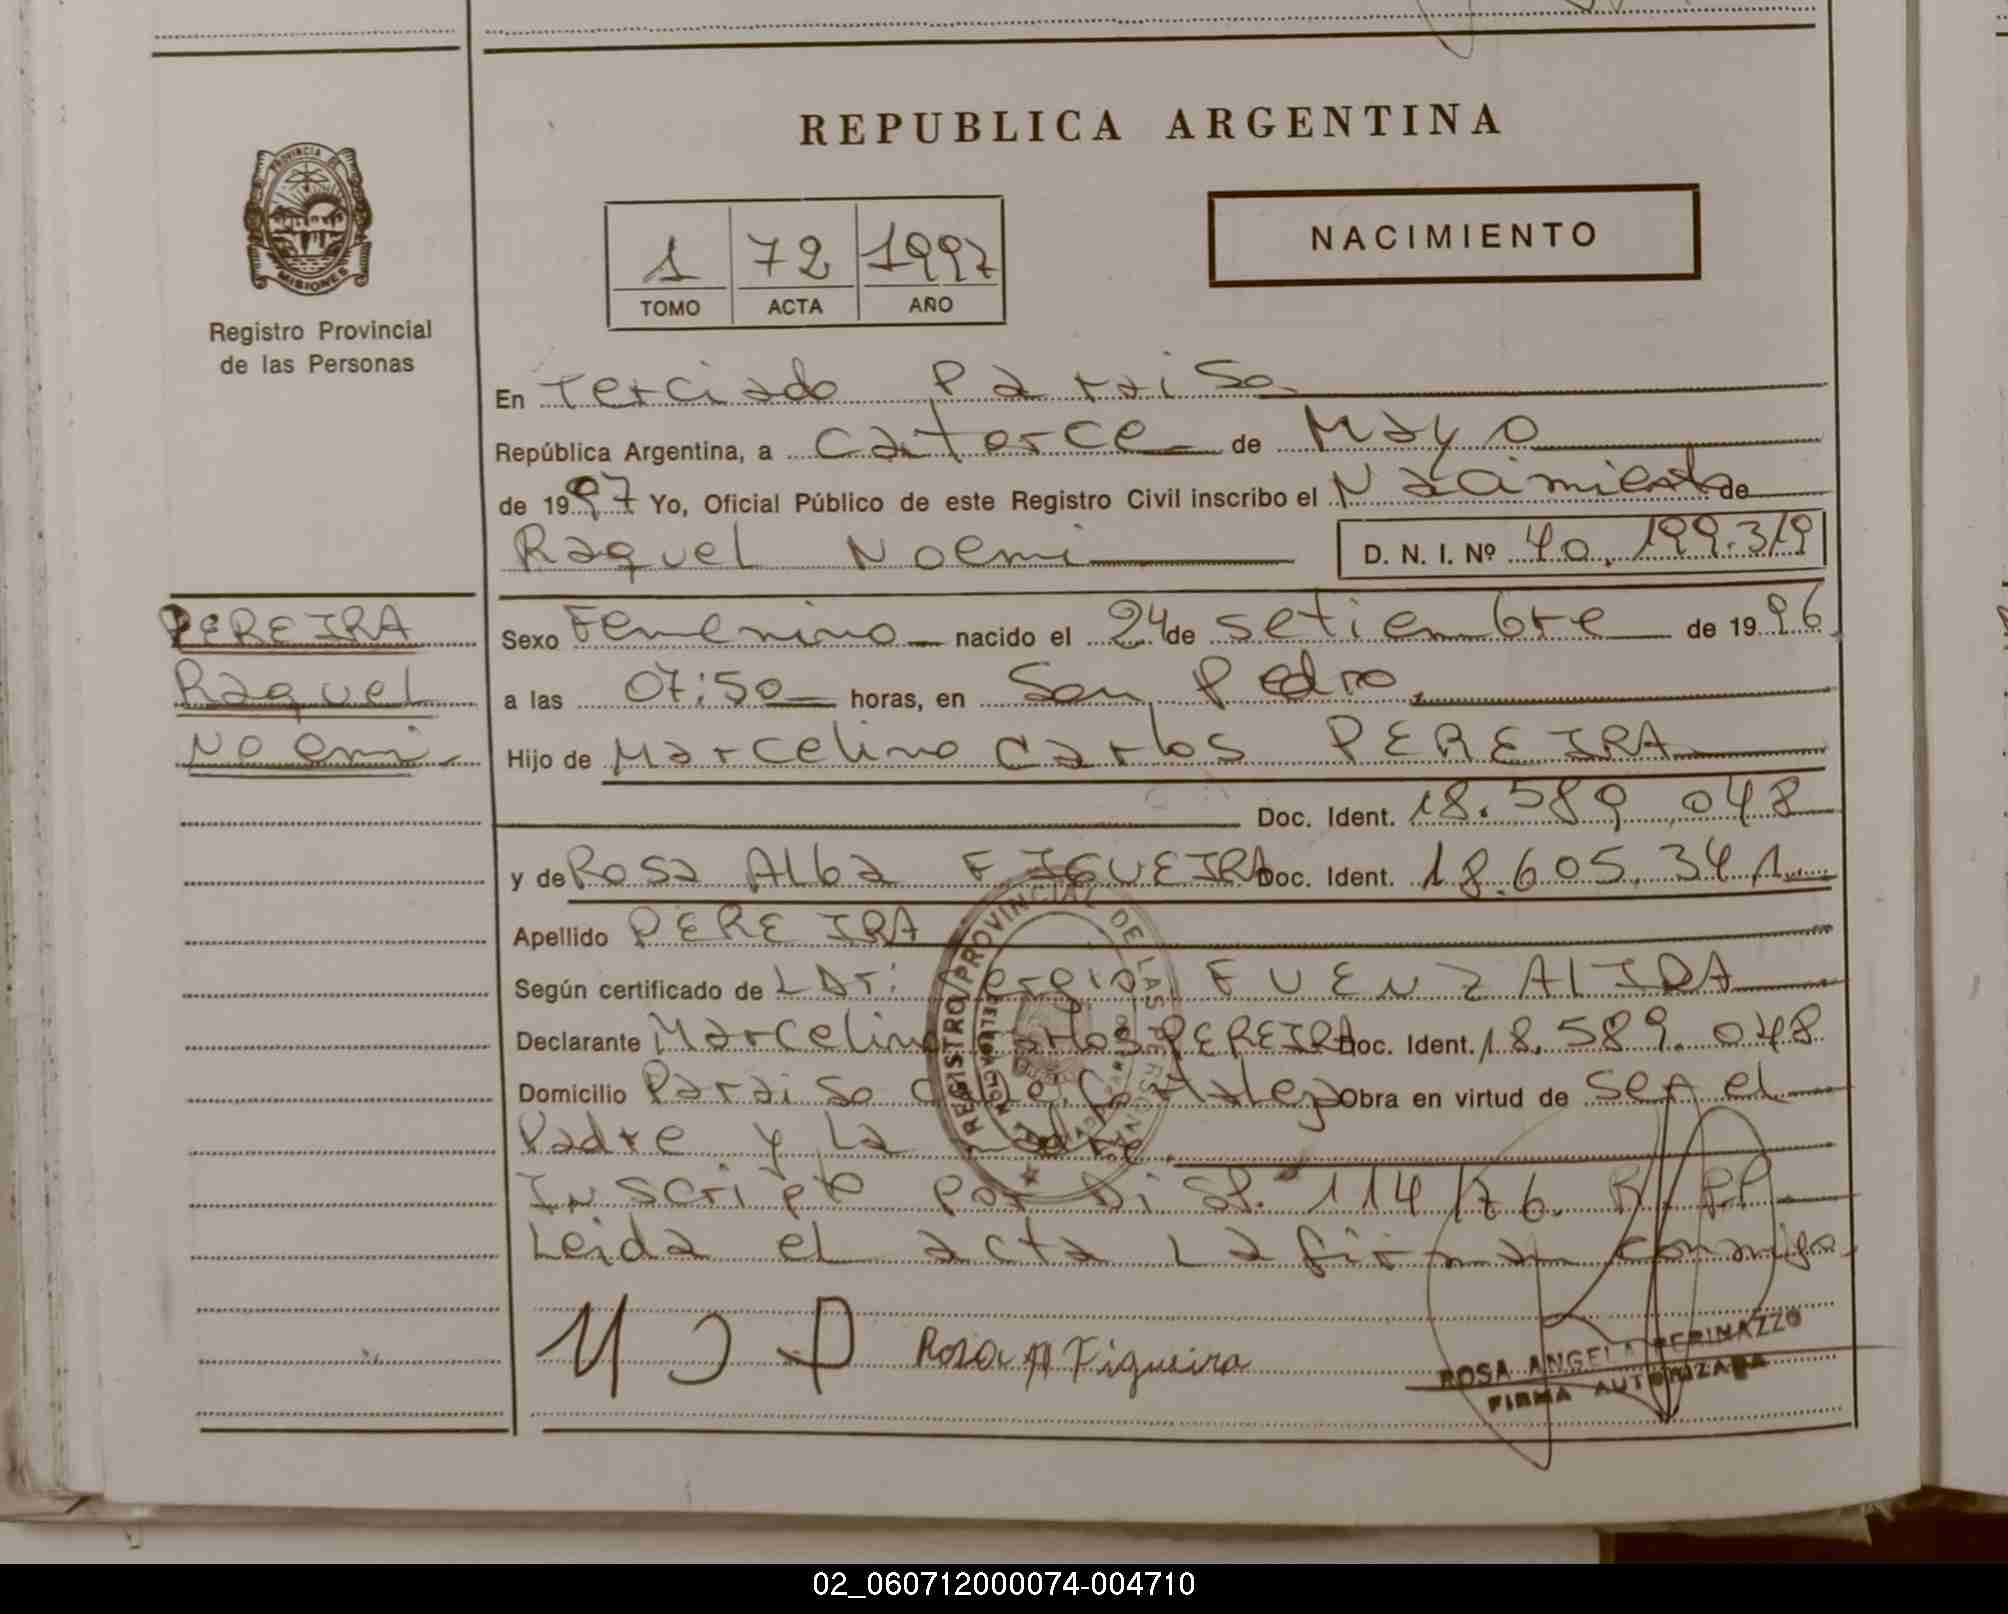 REPUBLICA ARGENTINA
PROVINCIA DE
MISIONES
Registro Provincial
de las Personas
1 72 1997
TOMO ACTA AÑO
NACIMIENTO
En Terciado Paraiso
República Argentina, a catorce de Mayo
de 1997 Yo, Oficial Público de este Registro Civil inscribo el Nacimiento de
Raquel Noemi D. N. I. Nº 40.199.319
PEREIRA
Raquel
Noemi
Sexo Femenino nacido el 24 de setiembre de 1996
a las 07:50 horas, en San Pedro
Hijo de Marcelino Carlos PEREIRA
Doc. Ident. 18.589.048
y de Rosa Alba FIGUEIRA Doc. Ident. 18.605.341
Apellido PEREIRA
Según certificado de Sergio FUENZALIDA
Declarante Marcelino Carlos PEREIRA Doc. Ident. 18.589.048
Domicilio Paraiso Obra en virtud de ser el
Padre y La Madre
Inscripto por Disp. 114/76. R.P.P.
Leida el acta La firman conmigo.
REGISTRO PROVINCIAL DE LAS PERSONAS
M J P Rosa A Figueira
ROSA ANGELA PERINAZZO
FIRMA AUTORIZADA
02_060712000074-004710